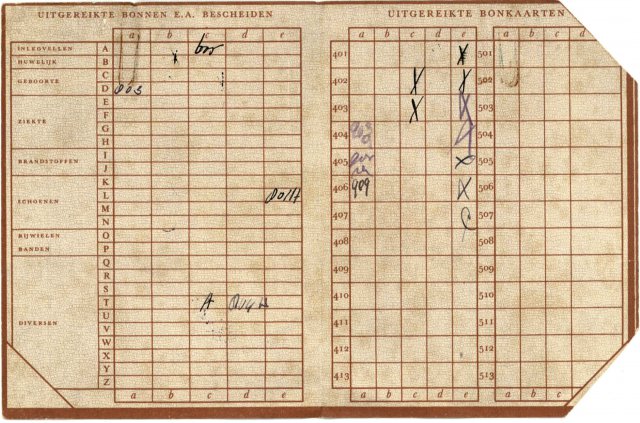 UITGEREIKTE BONNEN E.A. BESCHEIDEN
a b c d e
INLEGVELLEN A
HUWELIJK B
C
GEBOORTE D
E
F
ZIEKTE G
H
I
BRANDSTOFFEN J
K
L
SCHOENEN M
N
RIJWIELEN O
BANDEN P
Q
R
S
T
DIVERSEN U
V
W
X
Y
Z
a b c d e
UITGEREIKTE BONKAARTEN
a b c d e a b c d
401 X 501
402 X X 502
403 X 503
404 504
405 X 505
406 909 X 506
407 507
408 508
409 509
410 510
411 511
412 512
413 513
a b c d e a b c d